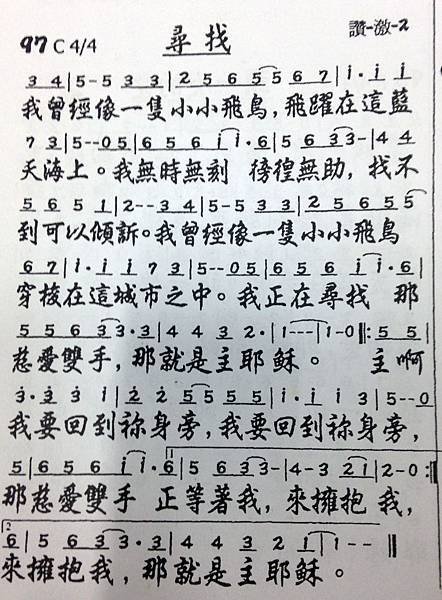 讚-激-2
97 C 4/4 尋找
3 4 | 5 - 5 3 3 | 2 5 6 5 5 6 7 | i · i i
我曾經像一隻小小飛鳥，飛躍在這藍
7 3 | 5 - - 0 5 | 6 5 6 i i · 6 | 5 6 3 3 - | 4 4
天海上。我無時無刻 徬徨無助，找不
5 6 5 1 | 2 - - 3 4 | 5 - 5 3 3 | 2 5 6 5 5
到可以傾訴。我曾經像一隻小小飛鳥
6 7 | i · i i 7 3 | 5 - - 0 5 | 6 5 6 i i · 6 |
穿梭在這城市之中。我正在尋找 那
5 5 6 3 3 · 3 | 4 4 3 2 · | 1 - - - | 1 - 0 ‖: 5 5 |
慈愛雙手，那就是主耶穌。 主啊
3 · 3 3 1 | 2 2 5 5 5 5 | i · i i 3 | 5 - - 0
我要回到祢身旁，我要回到祢身旁，
5 | 6 5 6 i i · 6 | 5 6 3 3 - | 4 - 3 2 1 | 2 - 0 :‖
那慈愛雙手 正等著我，來擁抱 我，
6 | 5 6 3 3 · 3 | 4 4 3 2 1 | 1 - - ‖
來擁抱我，那就是主耶穌。